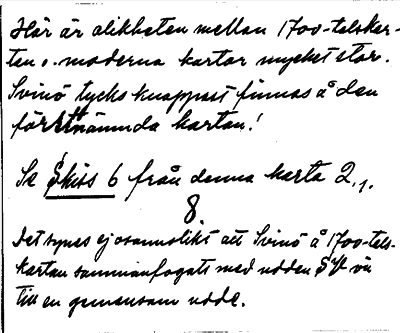 Här är olikheten mellan 1700-talskar-
ten o. moderna kartor mycket stor.
Svinö tycks knappast finnas å den
förstnämnda kartan!
Se Skiss 6 från denna karta 2.1.
8.
Det synes ej osannolikt att Svinö å 1700-tals-
kartan sammanfogats med udden SV
till en gemensam udde.